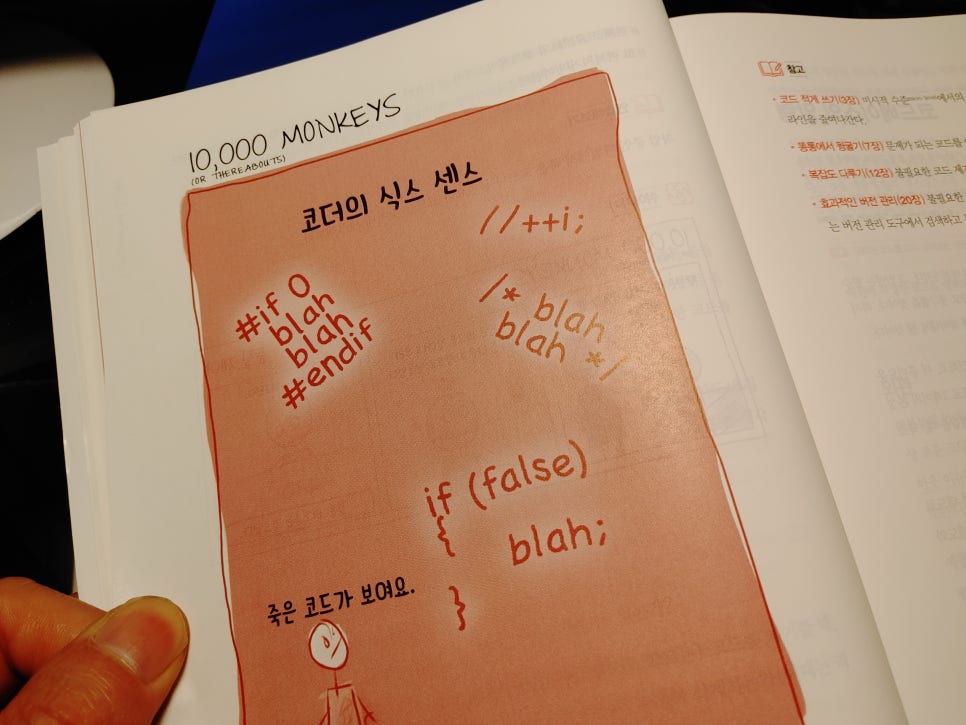 10,000 MONKEYS
(OR THEREABOUTS)
코더의 식스 센스
//++i;
#if 0
blah
blah
#endif
/* blah
blah */
if (false)
{
blah;
}
죽은 코드가 보여요.
참고
• 코드 적게 쓰기(3장) 미시적 수준micro level에서의
라인을 줄여나간다.
• 똥통에서 뒹굴기(7장) 문제가 되는 코드를
• 복잡도 다루기(12장) 불필요한 코드 제
• 효과적인 버전 관리(20장) 불필요한
는 버전 관리 도구에서 검색하고